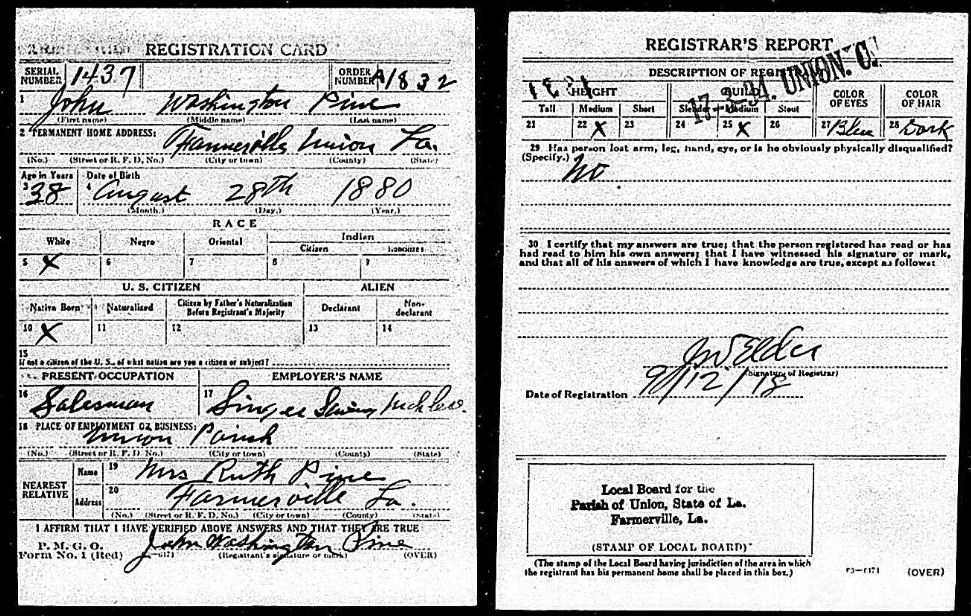 REGISTRATION CARD
SERIAL NUMBER 1437
ORDER NUMBER A1832
1 John Washington Pine
(First name) (Middle name) (Last name)
2 PERMANENT HOME ADDRESS:
Farmerville Union La.
(No.) (Street or R. F. D. No.) (City or town) (County) (State)
Age in Years Date of Birth
3 38 4 August 28th 1880
(Month.) (Day.) (Year.)
RACE
White Negro Oriental Indian
Citizen Noncitizen
5 X 6 7 8 9
U. S. CITIZEN ALIEN
Native Born Naturalized Citizen by Father's Naturalization Before Registrant's Majority Declarant Non-declarant
10 X 11 12 13 14
15
If not a citizen of the U. S., of what nation are you a citizen or subject?
PRESENT OCCUPATION EMPLOYER'S NAME
16 Salesman 17 Singer Sewing
18 PLACE OF EMPLOYMENT OR BUSINESS:
Union Parish
(No.) (Street or R. F. D. No.) (City or town) (County) (State)
NEAREST RELATIVE
Name 19 Mrs Ruth Pine
Address 20 Farmerville La.
(No.) (Street or R. F. D. No.) (City or town) (County) (State)
I AFFIRM THAT I HAVE VERIFIED ABOVE ANSWERS AND THAT THEY ARE TRUE
P. M. G. O.
Form No. 1 (Red) John Washington Pine
(Registrant's signature or mark) (OVER)
REGISTRAR'S REPORT
17-3-24. UNION. C.
DESCRIPTION OF REGISTRANT
HEIGHT BUILD COLOR OF EYES COLOR OF HAIR
Tall Medium Short Slender Medium Stout
21 22 X 23 24 25 X 26 27 Blue 28 Dark
29 Has person lost arm, leg, hand, eye, or is he obviously physically disqualified?
(Specify.) No
30 I certify that my answers are true; that the person registered has read or has
had read to him his own answers; that I have witnessed his signature or mark,
and that all of his answers of which I have knowledge are true, except as follows:
Elder
(Signature of Registrar)
Date of Registration 9/12/18
Local Board for the
Parish of Union, State of La.
Farmerville, La.
(STAMP OF LOCAL BOARD)
(The stamp of the Local Board having jurisdiction of the area in which
the registrant has his permanent home shall be placed in this box.)
(OVER)